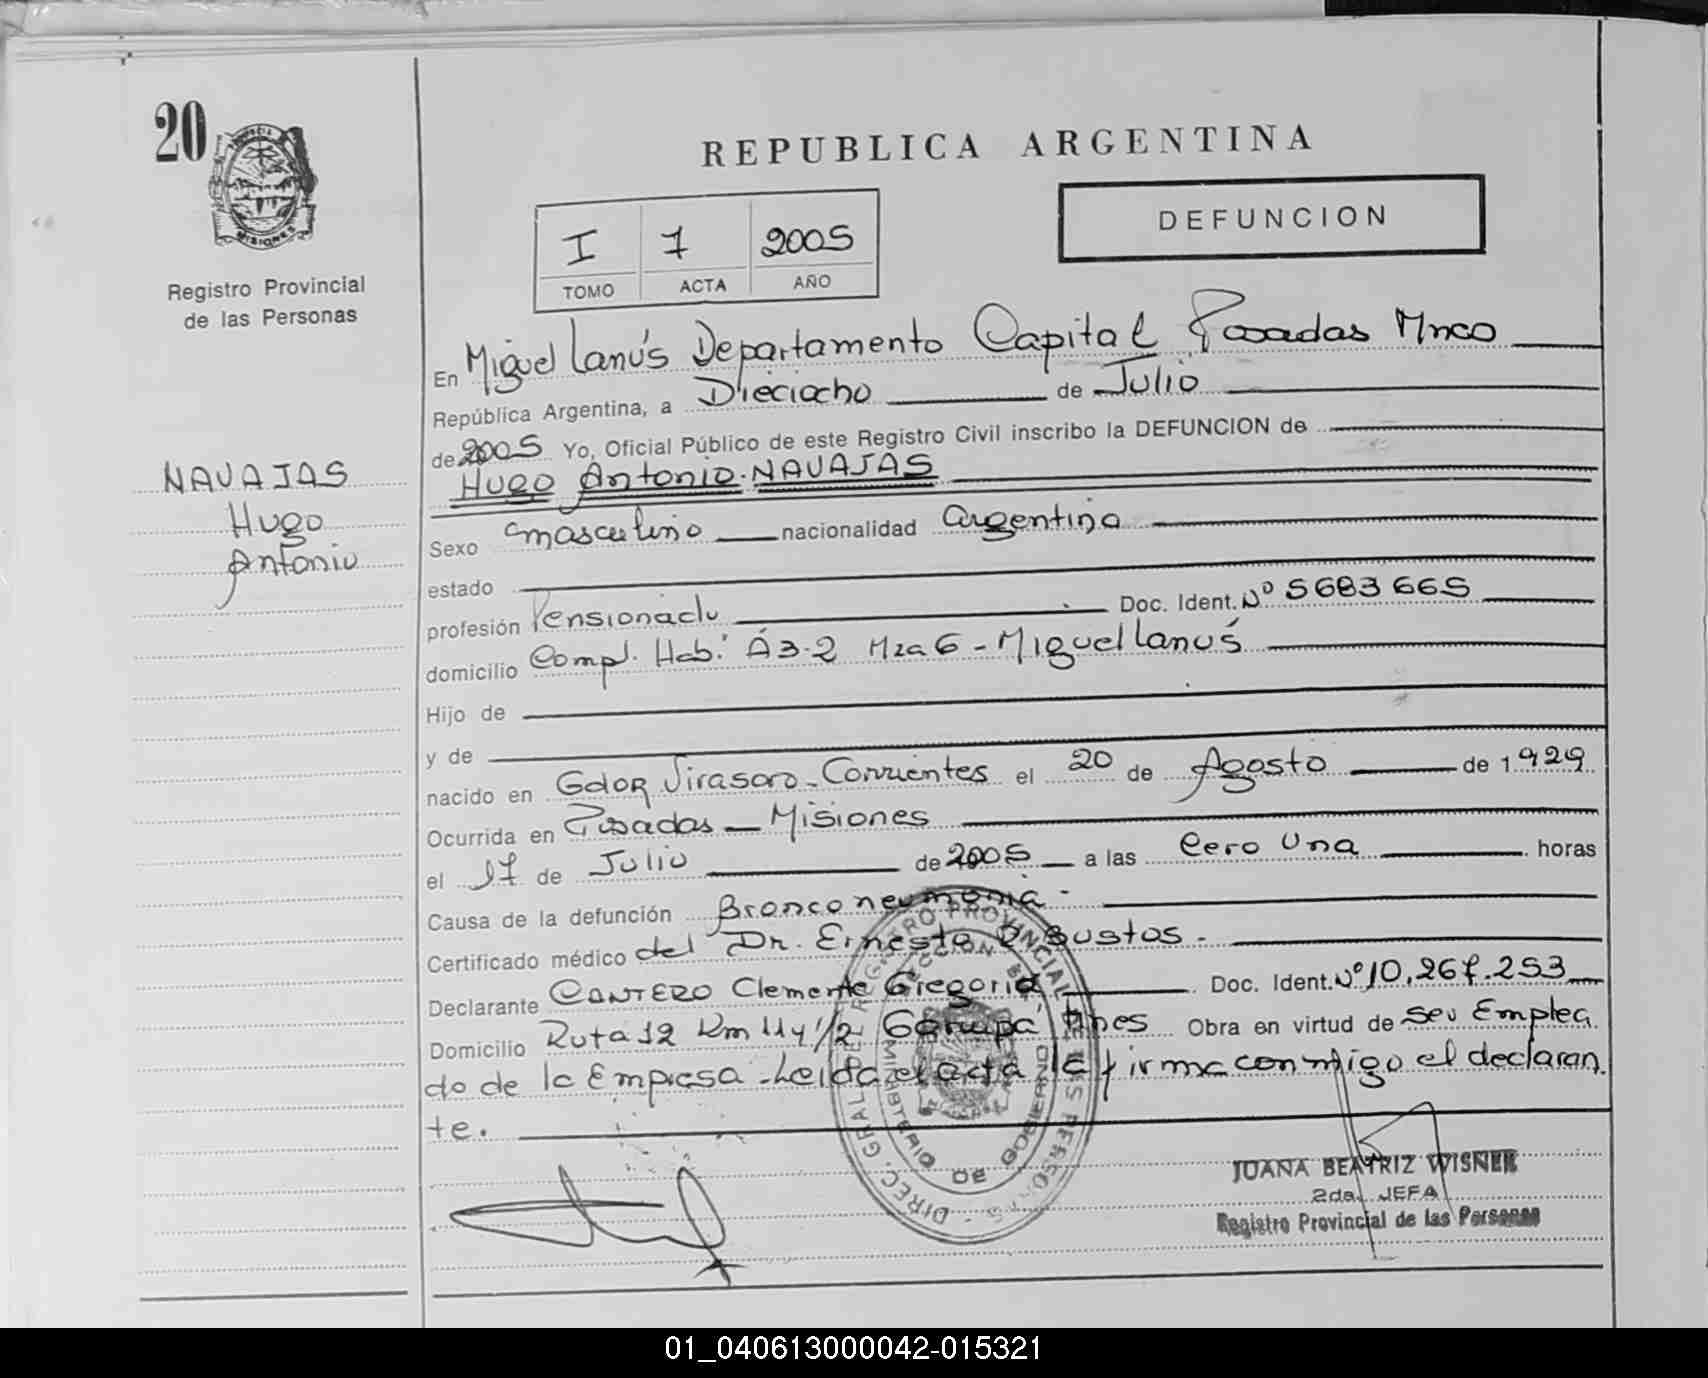 20
MISIONES
Registro Provincial
de las Personas
NAVAJAS
Hugo
Antonio
REPUBLICA ARGENTINA
I 7 2005
TOMO ACTA AÑO
DEFUNCION
En Miguel Lanús Departamento Capital Posadas Mnes
República Argentina, a Dieciocho de Julio
de 2005 Yo, Oficial Público de este Registro Civil inscribo la DEFUNCION de
Hugo Antonio NAVAJAS
Sexo masculino nacionalidad argentina
estado
profesión Pensionado Doc. Ident. Nº 5683665
domicilio Compl. Hab. A3-2 Mza 6 - Miguel Lanús
Hijo de
y de
nacido en Gdor Virasoro - Corrientes el 20 de Agosto de 1929
Ocurrida en Posadas - Misiones
el 17 de Julio de 2005 a las Cero Una horas
Causa de la defunción Bronconeumonia -
Certificado médico del Dr. Ernesto Bustos -
Declarante CANTERO Clemente Gregorio Doc. Ident. Nº 10.267.253
Domicilio Ruta 12 Km 11 y 1/2 Garupá Mnes Obra en virtud de ser Emplea
do de la Empresa - Leida el acta la firma conmigo el declaran
te.
DIREC. GRAL. DE REGISTRO PROVINCIAL DE LAS PERSONAS
MINISTERIO DE GOBIERNO
JUANA BEATRIZ WISNER
2da. JEFA
Registro Provincial de las Personas
01_040613000042-015321